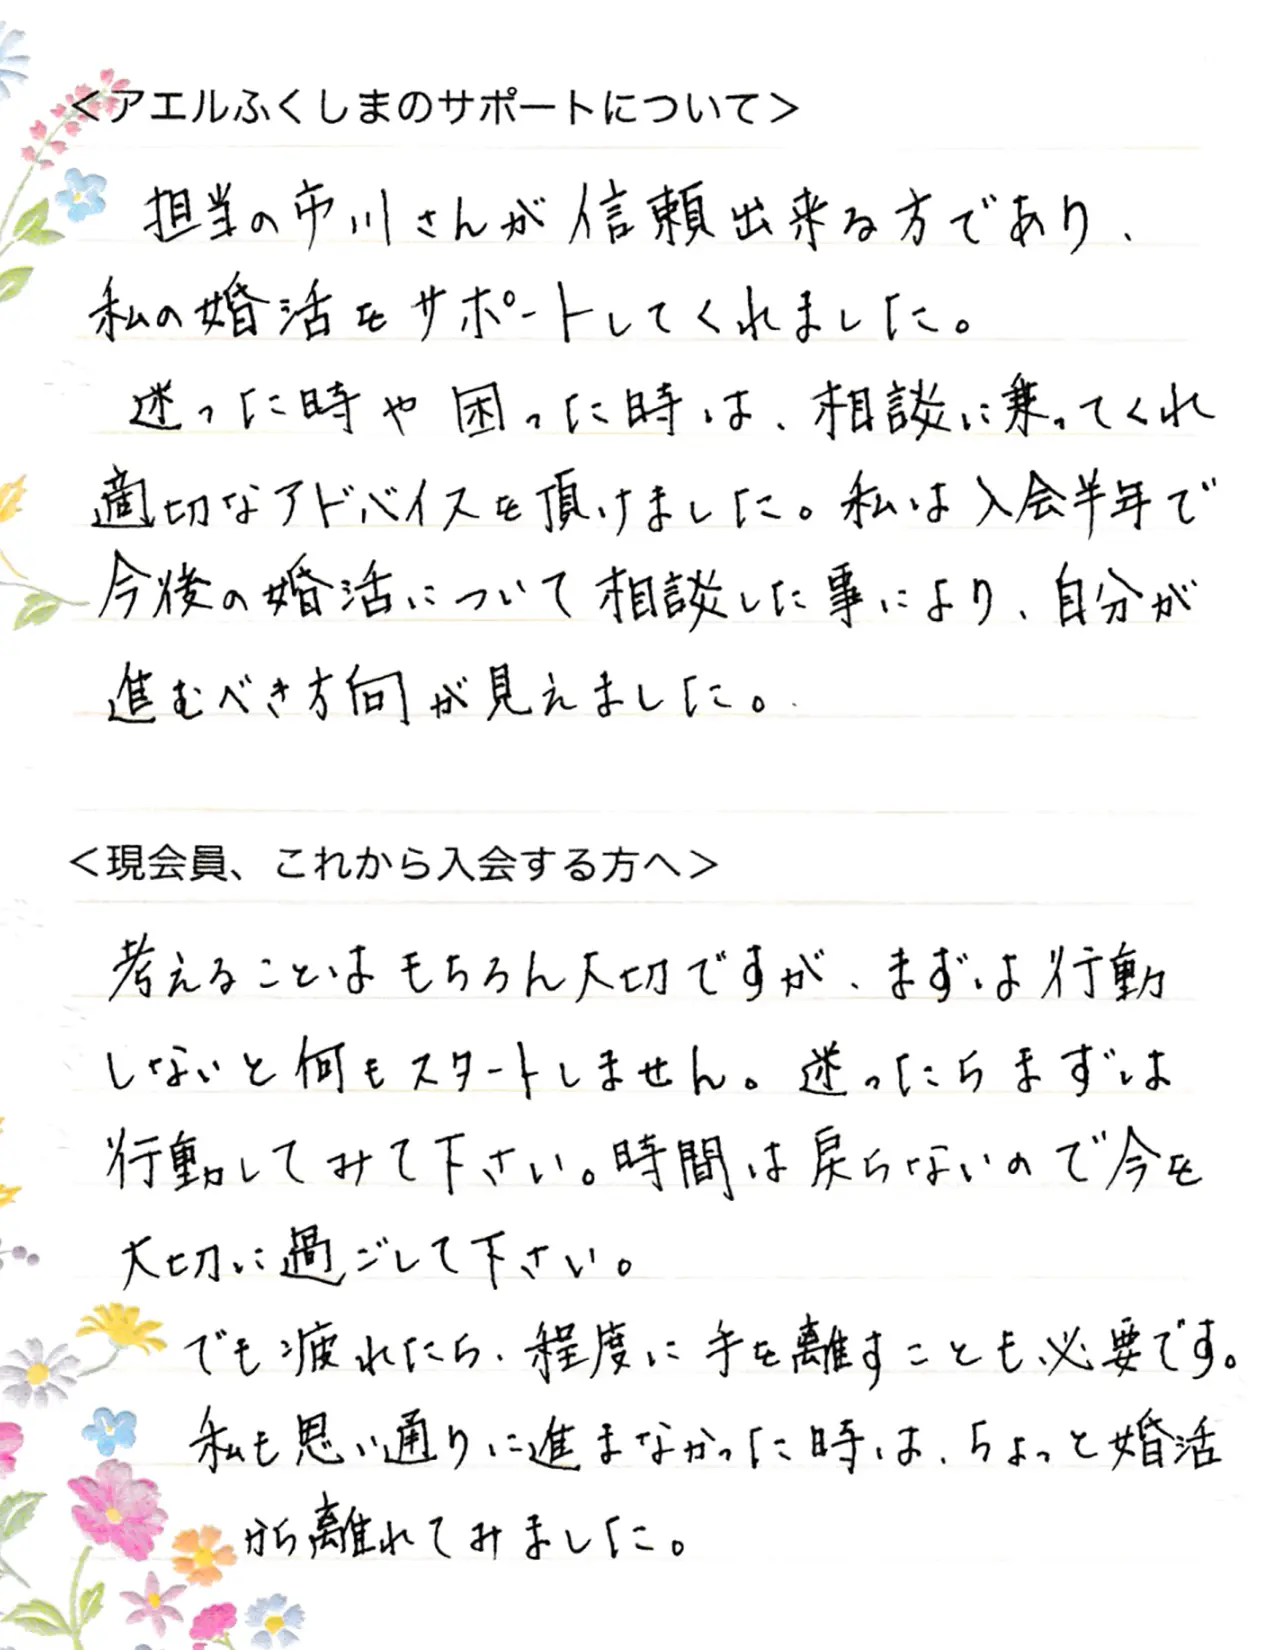 ＜アエルふくしまのサポートについて＞
担当の市川さんが信頼出来る方であり、
私の婚活をサポートしてくれました。
迷った時や困った時は、相談に乗ってくれ
適切なアドバイスを頂けました。私は入会半年で
今後の婚活について相談した事により、自分が
進むべき方向が見えました。
＜現会員、これから入会する方へ＞
考えることはもちろん大切ですが、まずは行動
しないと何もスタートしません。迷ったらまずは
行動してみて下さい。時間は戻らないので今を
大切に過ごして下さい。
でも疲れたら、程度に手を離すことも必要です。
私も思い通りに進まなかった時は、ちょっと婚活
から離れてみました。